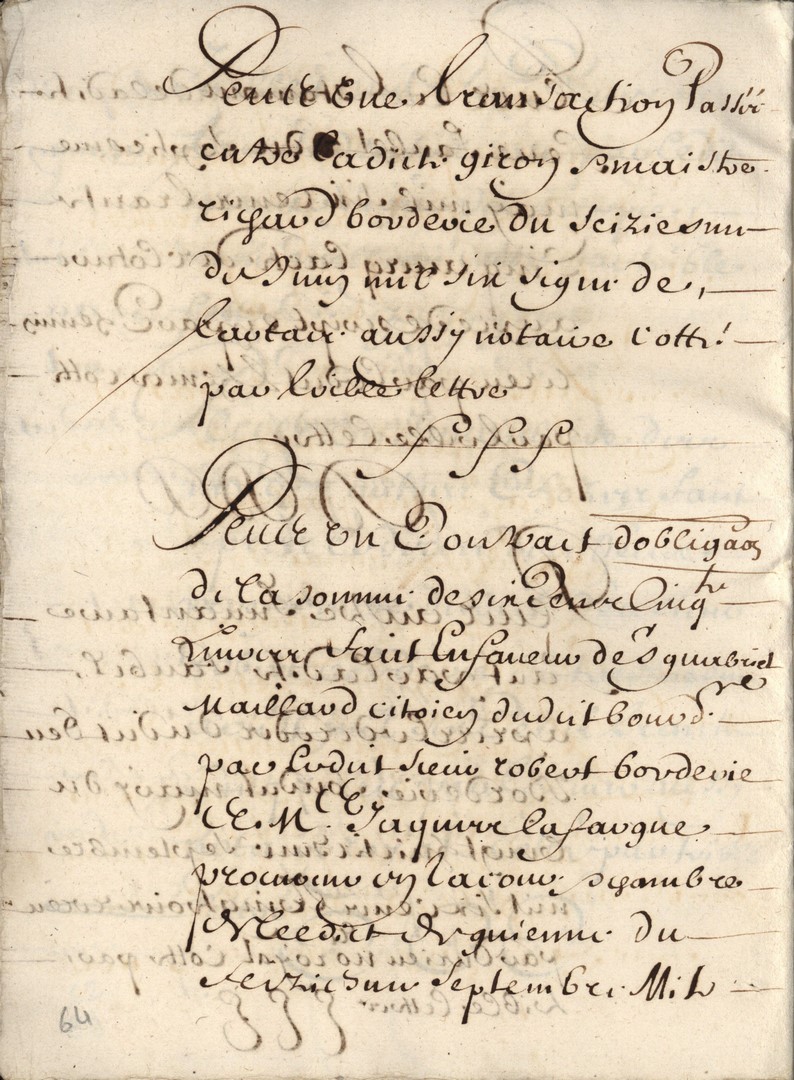 Plus Une Transaction Passée
entre Ladicte giron & maistre
richard bordevie du seiziesme
de Juin mil six signe de
lartair aussy notaire Cotté
par double lettre
fff
Plus Un Contract dobligaõn
de la somme de six Cens Cinqte
Livres faict En faveur de Sr guabriel
Maillard Citoien dudict bourd.
par Ledict sieur robert bordevie
Et Me Jacques lafargue
procureur en la cour & chambre
de Leedict de guienne du
setziesme Septembre Mil
64